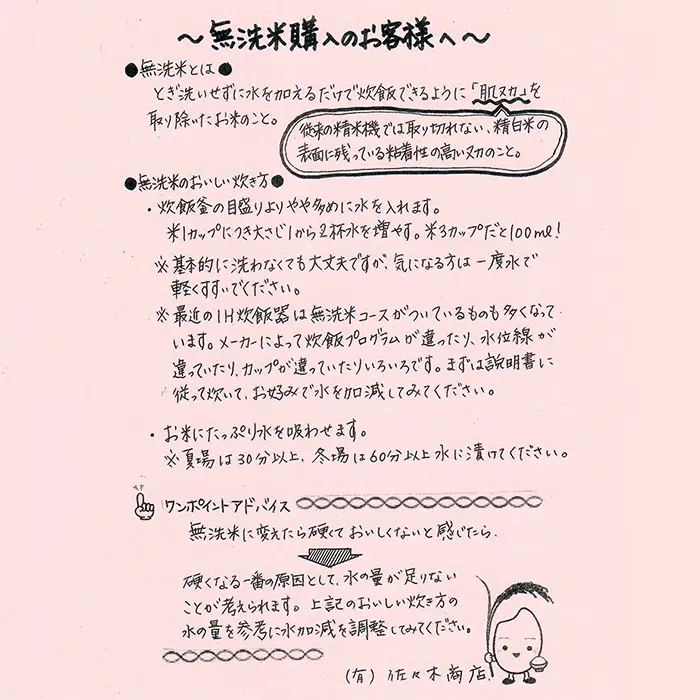 ～無洗米購入のお客様へ～
●無洗米とは●
とぎ洗いせずに水を加えるだけで炊飯できるように「肌ヌカ」を
取り除いたお米のこと。
従来の精米機では取り切れない、精白米の
表面に残っている粘着性の高いヌカのこと。
●無洗米のおいしい炊き方●
・炊飯釜の目盛りよりやや多めに水を入れます。
米1カップにつき大さじ1から2杯水を増やす。米3カップだと100ml!
※基本的に洗わなくても大丈夫ですが、気になる方は一度水で
軽くすすいでください。
※最近のIH炊飯器は無洗米コースがついているものも多くなって
います。メーカーによって炊飯プログラムが違ったり、水位線が
違っていたり、カップが違っていたりいろいろです。まずは説明書に
従って炊いて、お好みで水を加減してみてください。
・お米にたっぷり水を吸わせます。
※夏場は30分以上、冬場は60分以上水に漬けてください。
ワンポイントアドバイス
無洗米に変えたら硬くておいしくないと感じたら、
硬くなる一番の原因として、水の量が足りない
ことが考えられます。上記のおいしい炊き方の
水の量を参考に水加減を調整してみてください。
(有)佐々木商店